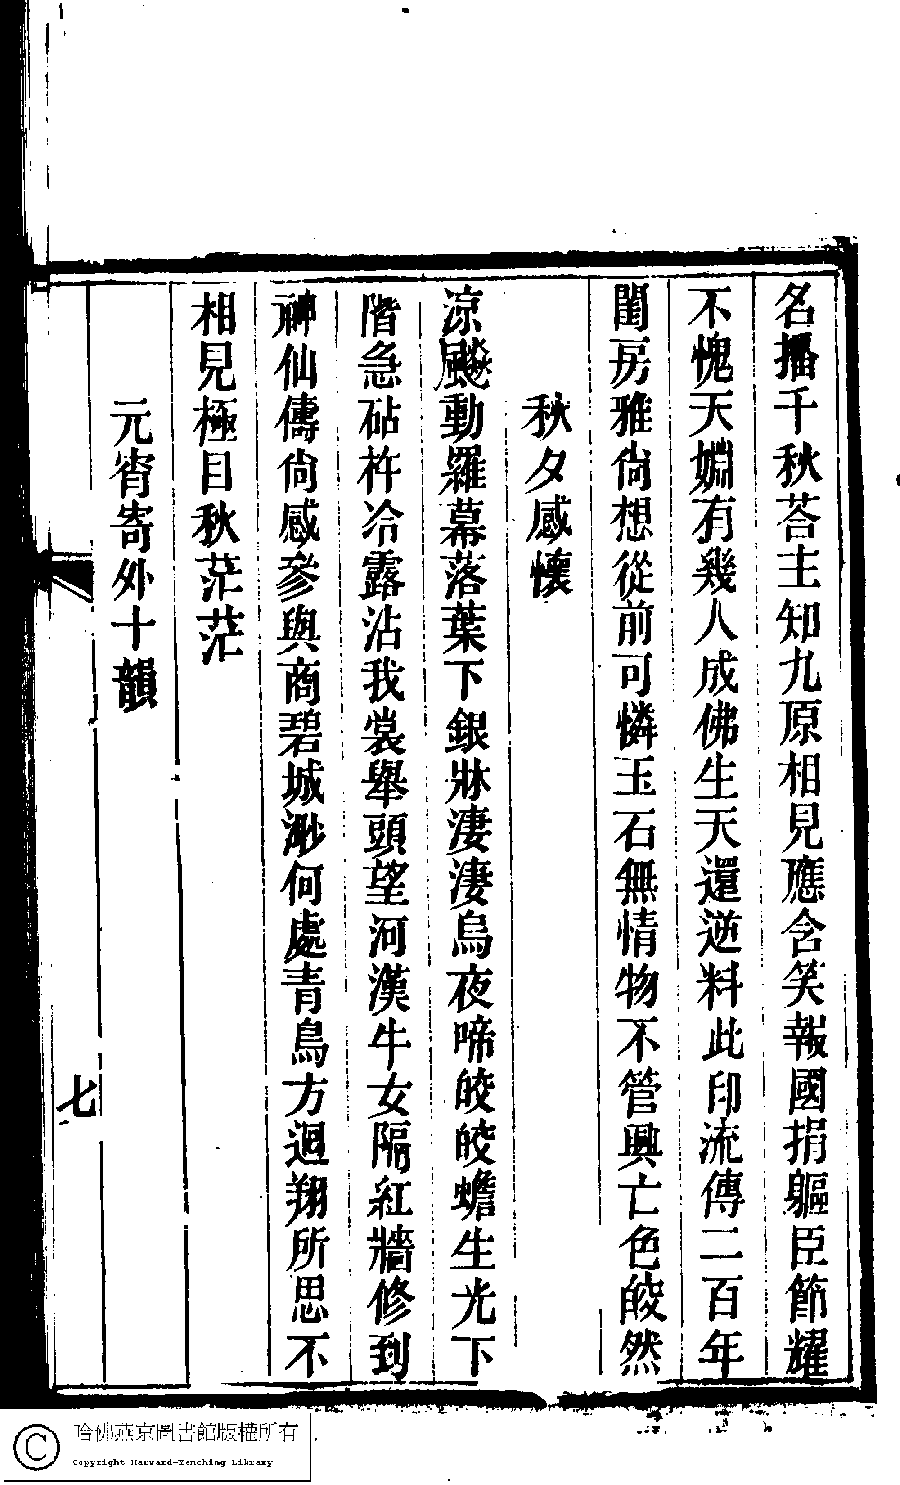 名播千秋荅主知九原相見應含笑報國捐軀臣節耀
不愧天淵有幾人成佛生天還逆料此印流傳二百年
閨房雅尙想從前可憐玉石無情物不管興亡色皎然
秋夕感懷
涼飈動羅幕落葉下銀牀淒淒烏夜啼皎皎蟾生光下
階急砧杵冷露沾我裳舉頭望河漢牛女隔紅牆修到
神仙儔尙感參與商碧城渺何處靑鳥方迴翔所思不
相見極目秋茫茫
元宵寄外十韻
七
哈佛燕京圖書館版權所有
Copyright Harvard-Yenching Library